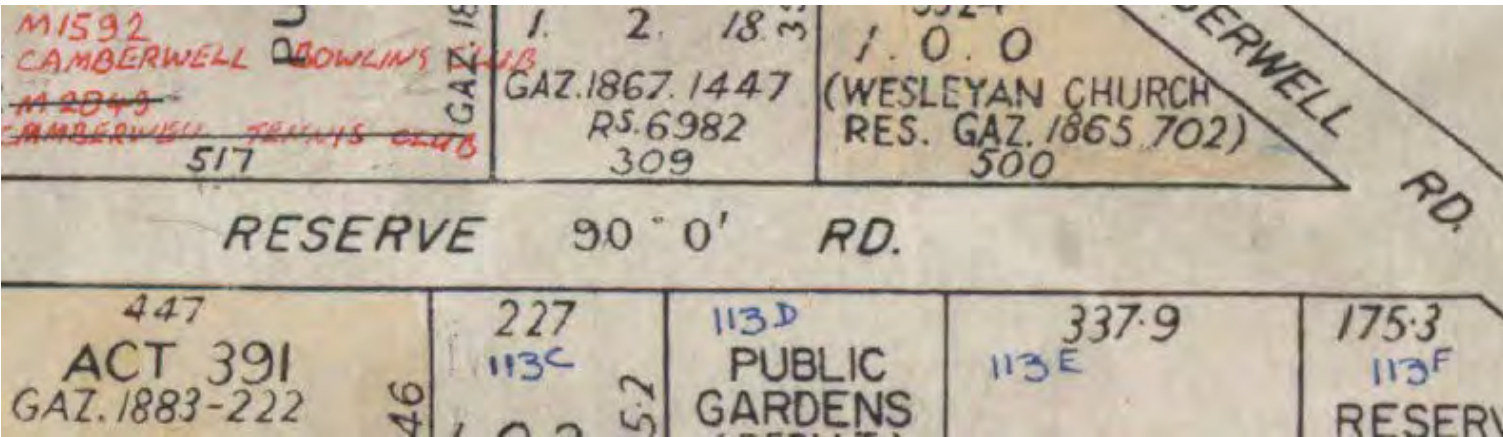 M1592
CAMBERWELL BOWLING CLUB
M2049
CAMBERWELL TENNIS CLUB
517
GAZ. 18
1. 2. 18.
GAZ. 1867. 1447
RS. 6982
309
1. 0. 0
(WESLEYAN CHURCH
RES. GAZ. 1865.702)
500
ERWELL
RD.
RESERVE 90° 0' RD.
447
ACT 391
GAZ. 1883-222
46
227
113C
5.2
113D
PUBLIC
GARDENS
337.9
113E
175.3
113F
RESERV